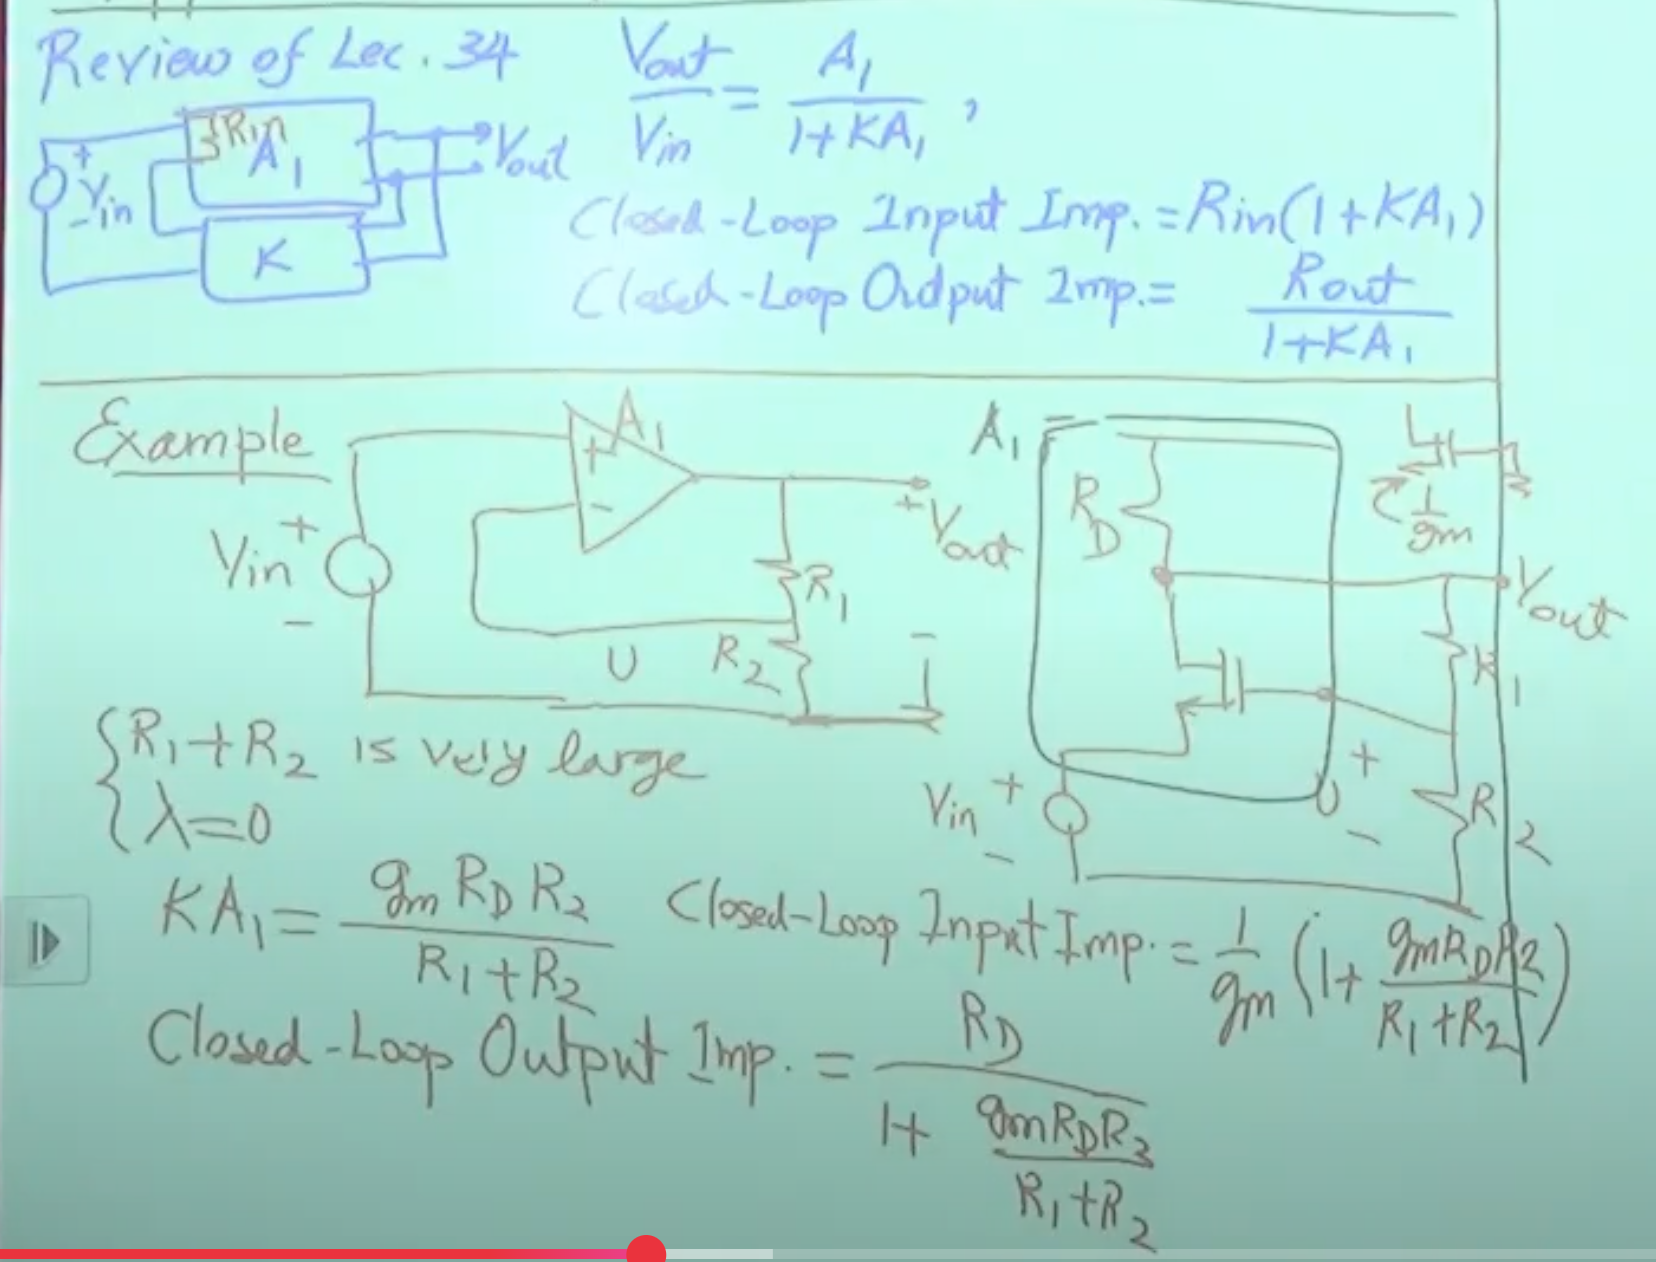 Review of Lec. 34
Vout / Vin = A1 / 1+KA1 ,
Rin
A1
+ Vin -
Vout
K
Closed-Loop Input Imp. = Rin(1+KA1)
Closed-Loop Output Imp. = Rout / 1+KA1
Example
A1
+
-
Vin + -
+ Vout -
R1
R2
A1
RD
1/gm
Vout
R1
R2
Vin + -
+
-
R1+R2 is very large
λ=0
KA1 = gm RD R2 / R1+R2
Closed-Loop Input Imp. = 1/gm (1+ gmRDR2 / R1+R2)
Closed-Loop Output Imp. = RD / 1+ gmRDR2 / R1+R2